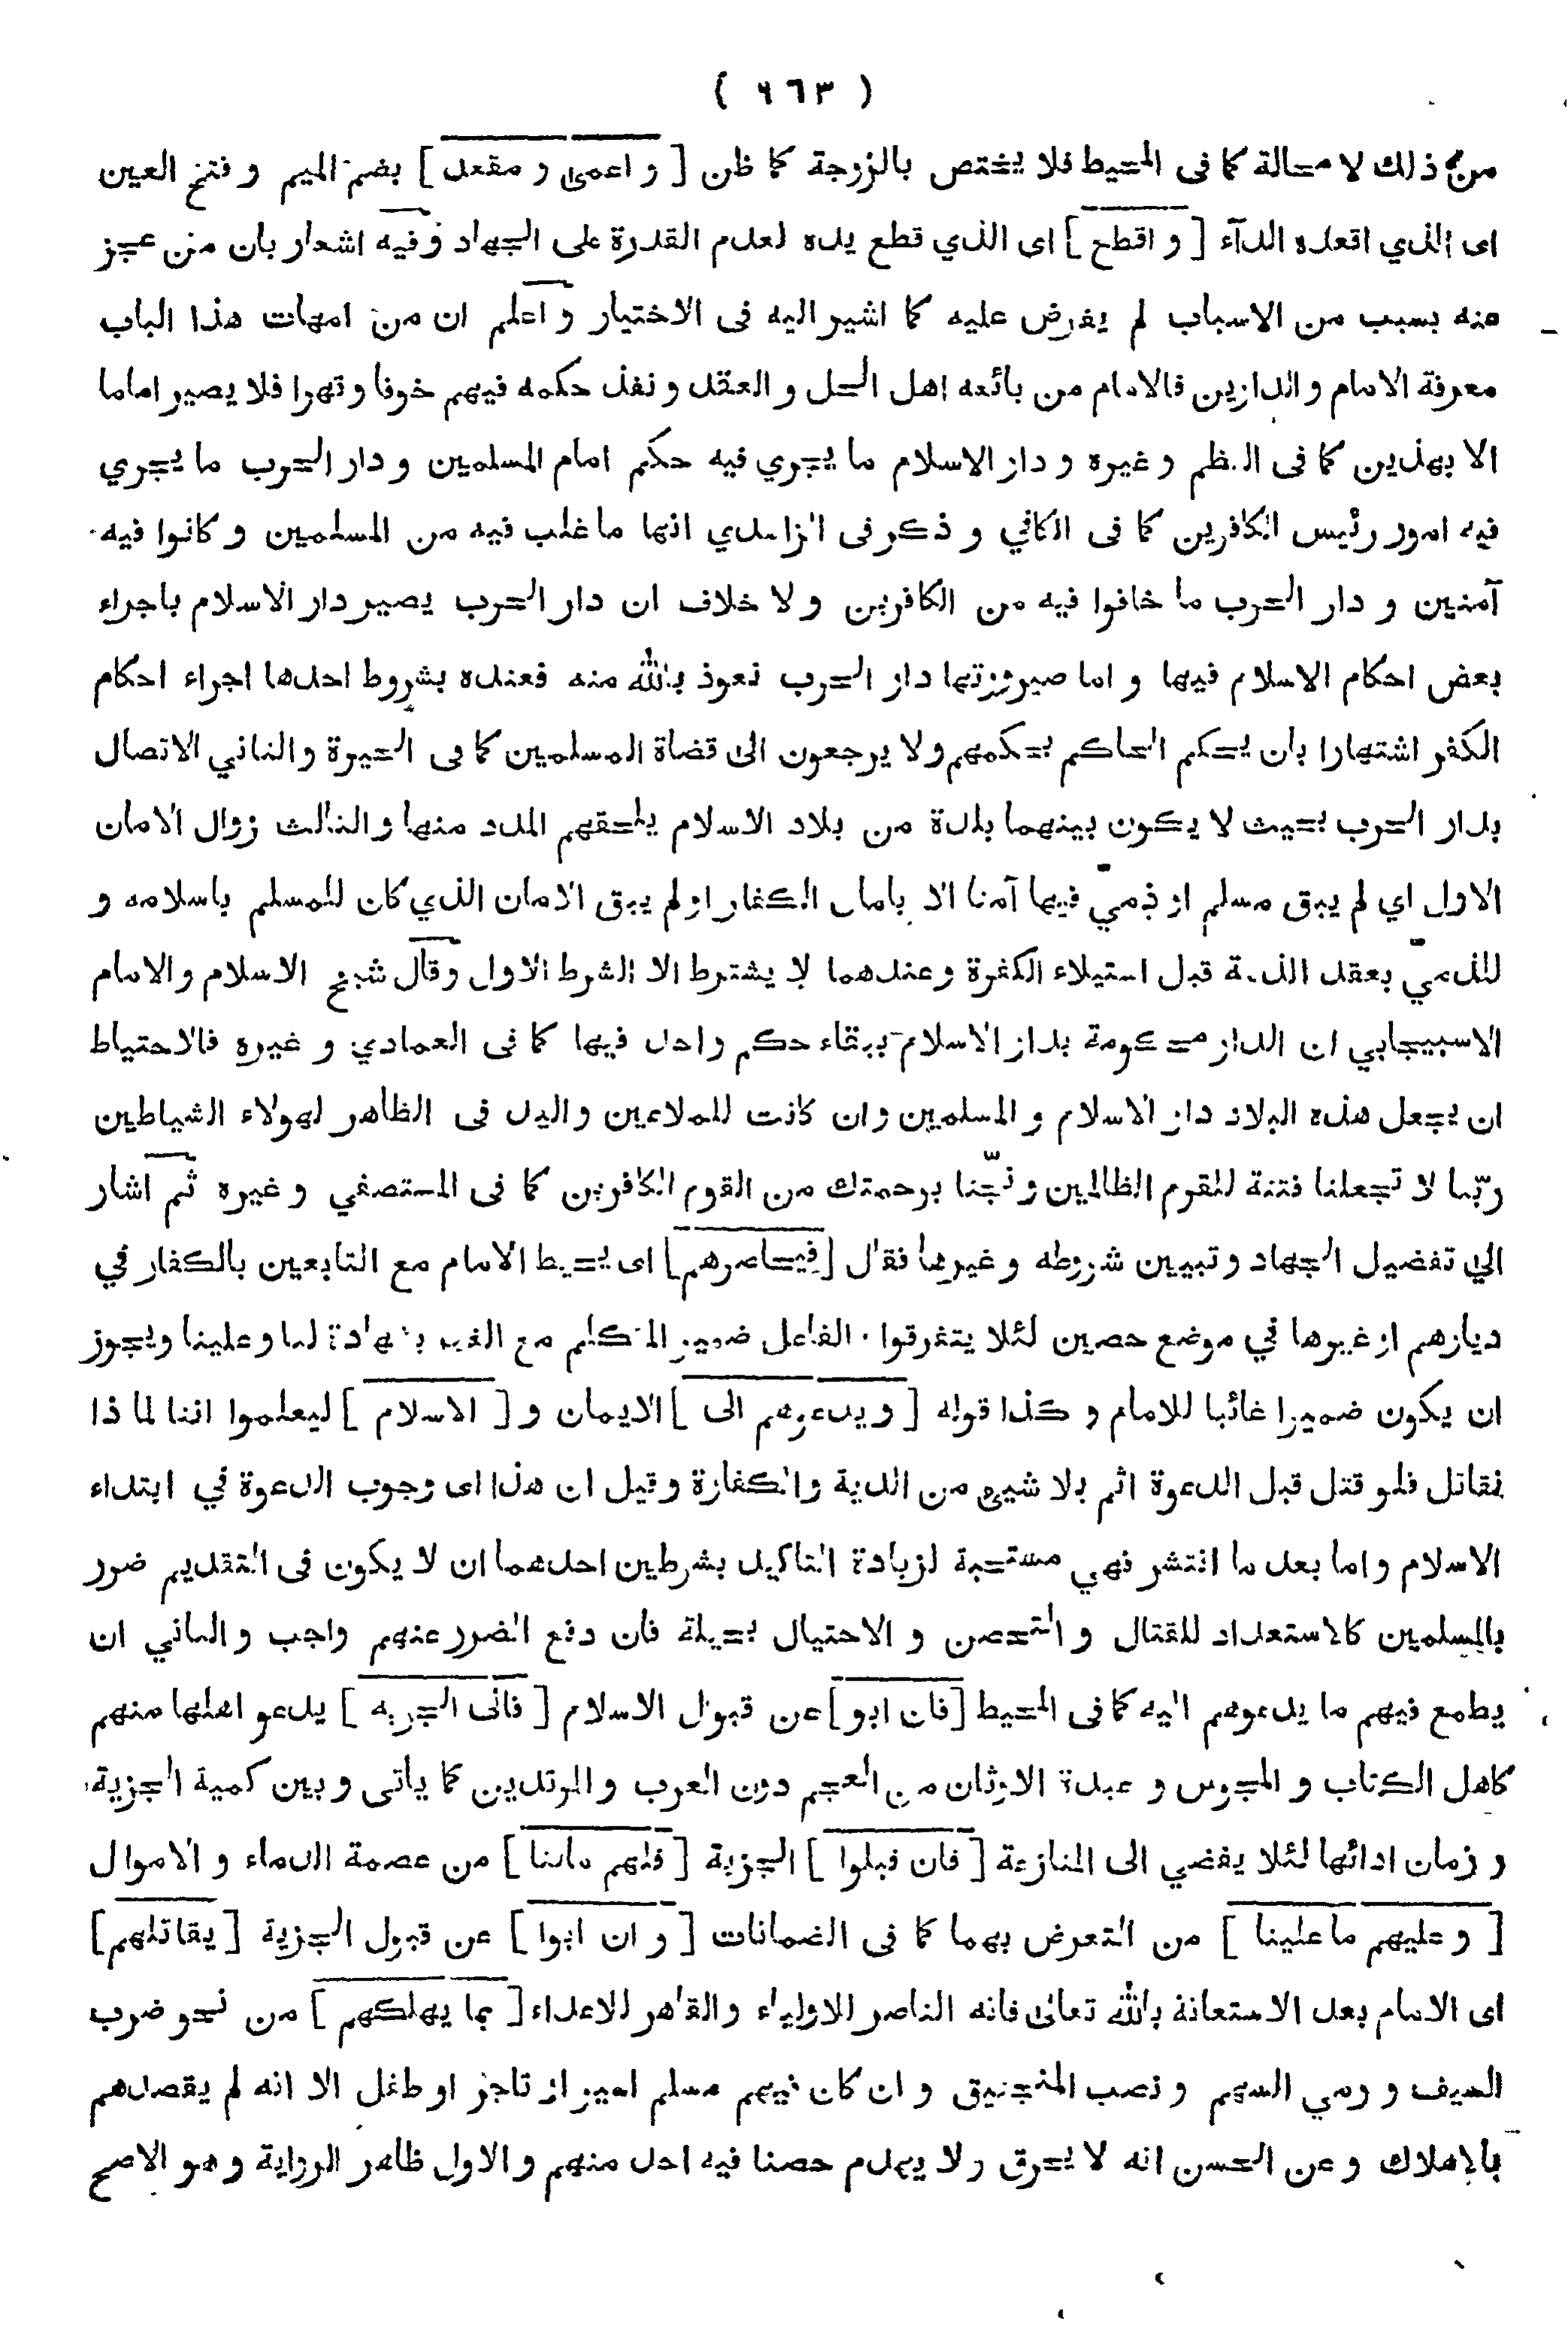 ( ٦٦٣ )
من ذلك لا محالة كما فى المحيط فلا يختص بالزوجة كما ظن [ و اعمى و مقعد ] بضم الميم و فتح العين
اى الذي اقعده الدآء [ و اقطع ] اى الذي قطع يده لعدم القدرة على الجهاد و فيه اشعار بان من عجز
منه بسبب من الاسباب لم يفرض عليه كما اشير اليه فى الاختيار و اعلم ان من امهات هذا الباب
معرفة الامام و الدارين فالامام من بائعه اهل الحل و العقد و نفذ حكمه فيهم خوفا و قهرا فلا يصير اماما
الا بهذين كما فى النظم و غيره و دار الاسلام ما يجري فيه حكم امام المسلمين و دار الحرب ما يجري
فيه امور رئيس الكافرين كما فى الكافي و ذكر فى الزاهدي انها ما غلب فيه من المسلمين و كانوا فيه
آمنين و دار الحرب ما خافوا فيه من الكافرين و لا خلاف ان دار الحرب يصير دار الاسلام باجراء
بعض احكام الاسلام فيها و اما صيرورتها دار الحرب نعوذ بالله منه فعنده بشروط احدها اجراء احكام
الكفر اشتهارا بان يحكم الحاكم بحكمهم ولا يرجعون الى قضاة المسلمين كما فى الحيرة و الثاني الاتصال
بدار الحرب بحيث لا يكون بينهما بلدة من بلاد الاسلام يلحقهم المدد منها و الثالث زوال الامان
الاول اي لم يبق مسلم او ذميّ فيها آمنا الا بامان الكفار او لم يبق الامان الذي كان للمسلم باسلامه و
للذميّ بعقد الذمة قبل استيلاء الكفرة و عندهما لا يشترط الا الشرط الاول و قال شيخ الاسلام و الامام
الاسبيجابي ان الدار محكومة بدار الاسلام ببقاء حكم واحد فيها كما فى العمادي و غيره فالاحتياط
ان يجعل هذه البلاد دار الاسلام و المسلمين و ان كانت للملاعين و اليد فى الظاهر لهولاء الشياطين
ربّنا لا تجعلنا فتنة للقوم الظالمين و نجّنا برحمتك من القوم الكافرين كما فى المستصفي و غيره ثم اشار
الي تفضيل الجهاد و تبيين شروطه و غيرها فقال [فيحاصرهم] اى يحيط الامام مع التابعين بالكفار في
ديارهم او غيرها في موضع حصين لئلا يتفرقوا . الفاعل ضمير المتكلم مع الغير بشهادة لنا و علينا و يجوز
ان يكون ضميرا غائبا للامام و كذا قوله [ و يدعوهم الى ] الايمان و [ الاسلام ] ليعلموا اننا لما ذا
نقاتل فلو قتل قبل الدعوة اثم بلا شيئ من الدية و الكفارة و قيل ان هذا اى وجوب الدعوة في ابتداء
الاسلام و اما بعد ما انتشر فهي مستحبة لزيادة التاكيد بشرطين احدهما ان لا يكون فى التقديم ضرر
بالمسلمين كالاستعداد للقتال و التحصن و الاحتيال بحيلة فان دفع الضرر عنهم واجب و الثاني ان
يطمع فيهم ما يدعوهم اليه كما فى المحيط [فان ابو] عن قبول الاسلام [ فالى الجزيه ] يدعو اهلها منهم
كاهل الكتاب و المجوس و عبدة الاوثان من العجم دون العرب و المرتدين كما ياتى و بين كمية الجزية
و زمان ادائها لئلا يفضي الى المنازعة [ فان قبلوا ] الجزية [ فلهم مالنا ] من عصمة الدماء و الاموال
[ و عليهم ما علينا ] من التعرض بهما كما فى الضمانات [ و ان ابوا ] عن قبول الجزية [ يقاتلهم ]
اى الامام بعد الاستعانة بالله تعالى فانه الناصر للاولياء و القاهر للاعداء [ بما يهلكهم ] من نحو ضرب
السيف و رمي السهم و نصب المنجنيق و ان كان فيهم مسلم اسير او تاجر او طفل الا انه لم يقصدهم
بالاهلاك و عن الحسن انه لا يحرق و لا يهدم حصنا فيه احد منهم و الاول ظاهر الرواية و هو الاصح